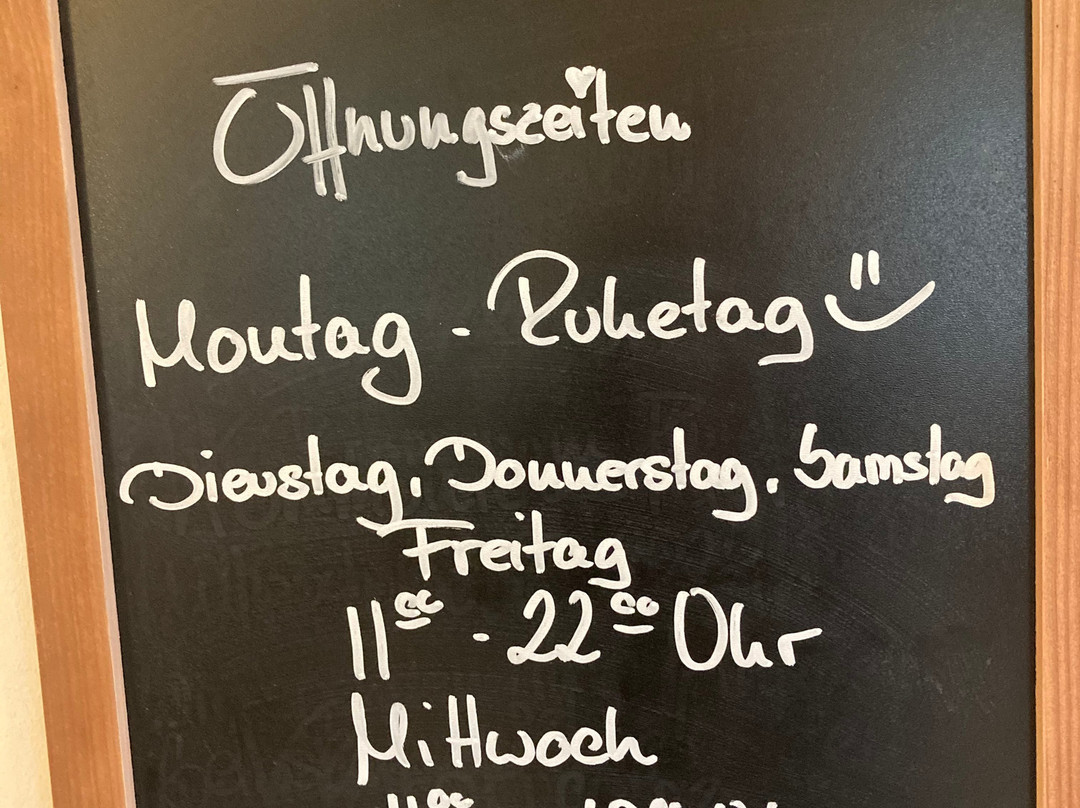 Öffnungszeiten
Montag - Ruhetag
Dienstag, Donnerstag, Samstag
Freitag
11⁰⁰ - 22⁰⁰ Uhr
Mittwoch